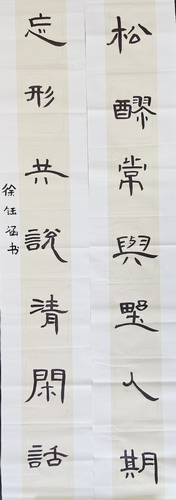 松醪常與野人期
忘形共說清閑話
徐任涵书